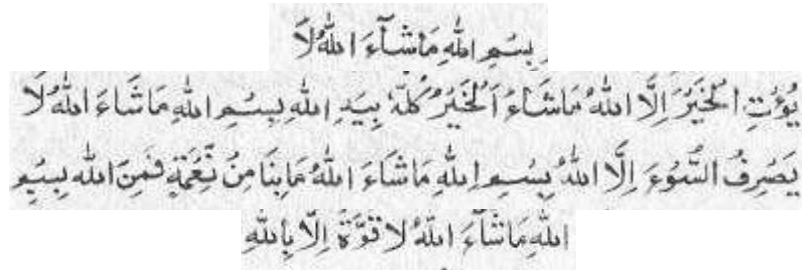 بِسْمِ اللهِ مَاشَآءَ اللهُ لَا
يُؤْتِ الْخَيْرَ إِلَّا اللهُ مَاشَاءَ اَلْخَيْرُ كُلُّهُ بِيَدِ اللهِ بِسْمِ اللهِ مَاشَاءَ اللهُ لَا
يَصْرِفُ السُّوْءَ إِلَّا اللهُ بِسْمِ اللهِ مَاشَاءَ اللهُ مَابِنَا مِنْ نِّعْمَةٍ فَمِنَ الله بِسْمِ
اللهِ مَاشَآءَ اللهُ لَا قُوَّةَ إِلَّا بِاللهِ